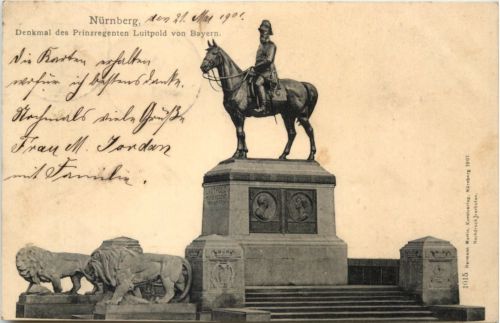 Nürnberg, den 21. Mai 1901.
Denkmal des Prinzregenten Luitpold von Bayern.
Die Karten erhalten
wofür ich bestens danke.
Nochmals viele Grüße
Frau M. Jordan
mit Familie.
1015 Hermann Martin, Kunstverlag, Nürnberg 1901.
Nachdruck verboten.